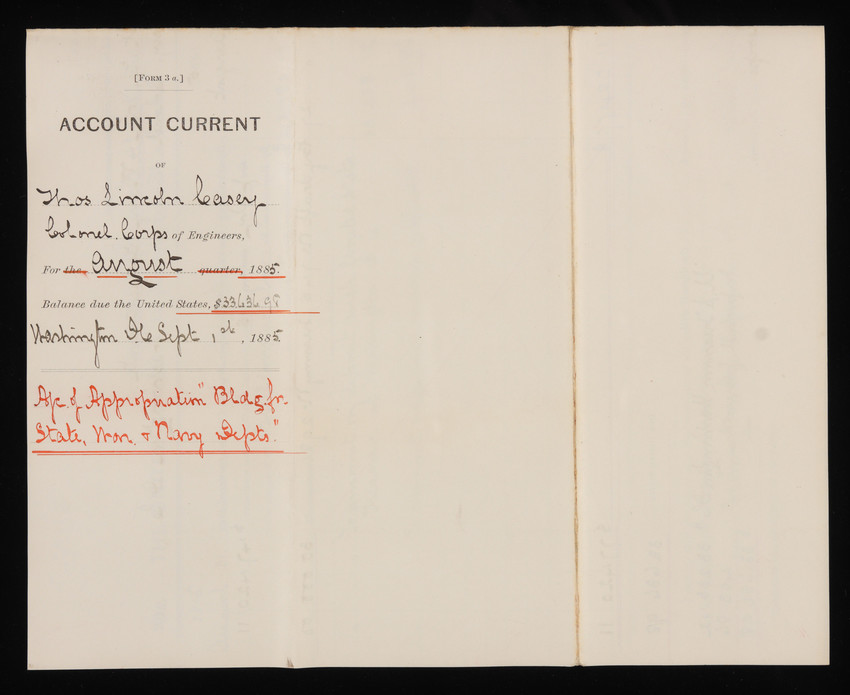 [FORM 3 a.]
ACCOUNT CURRENT
OF
Thos Lincoln Casey
Colonel. Corps of Engineers,
For the August quarter, 1885.
Balance due the United States, $33,636.98
Washington DC Sept 1st, 1885.
A/c. of Appropriation "Bldg. for
State, War. & Navy Depts."